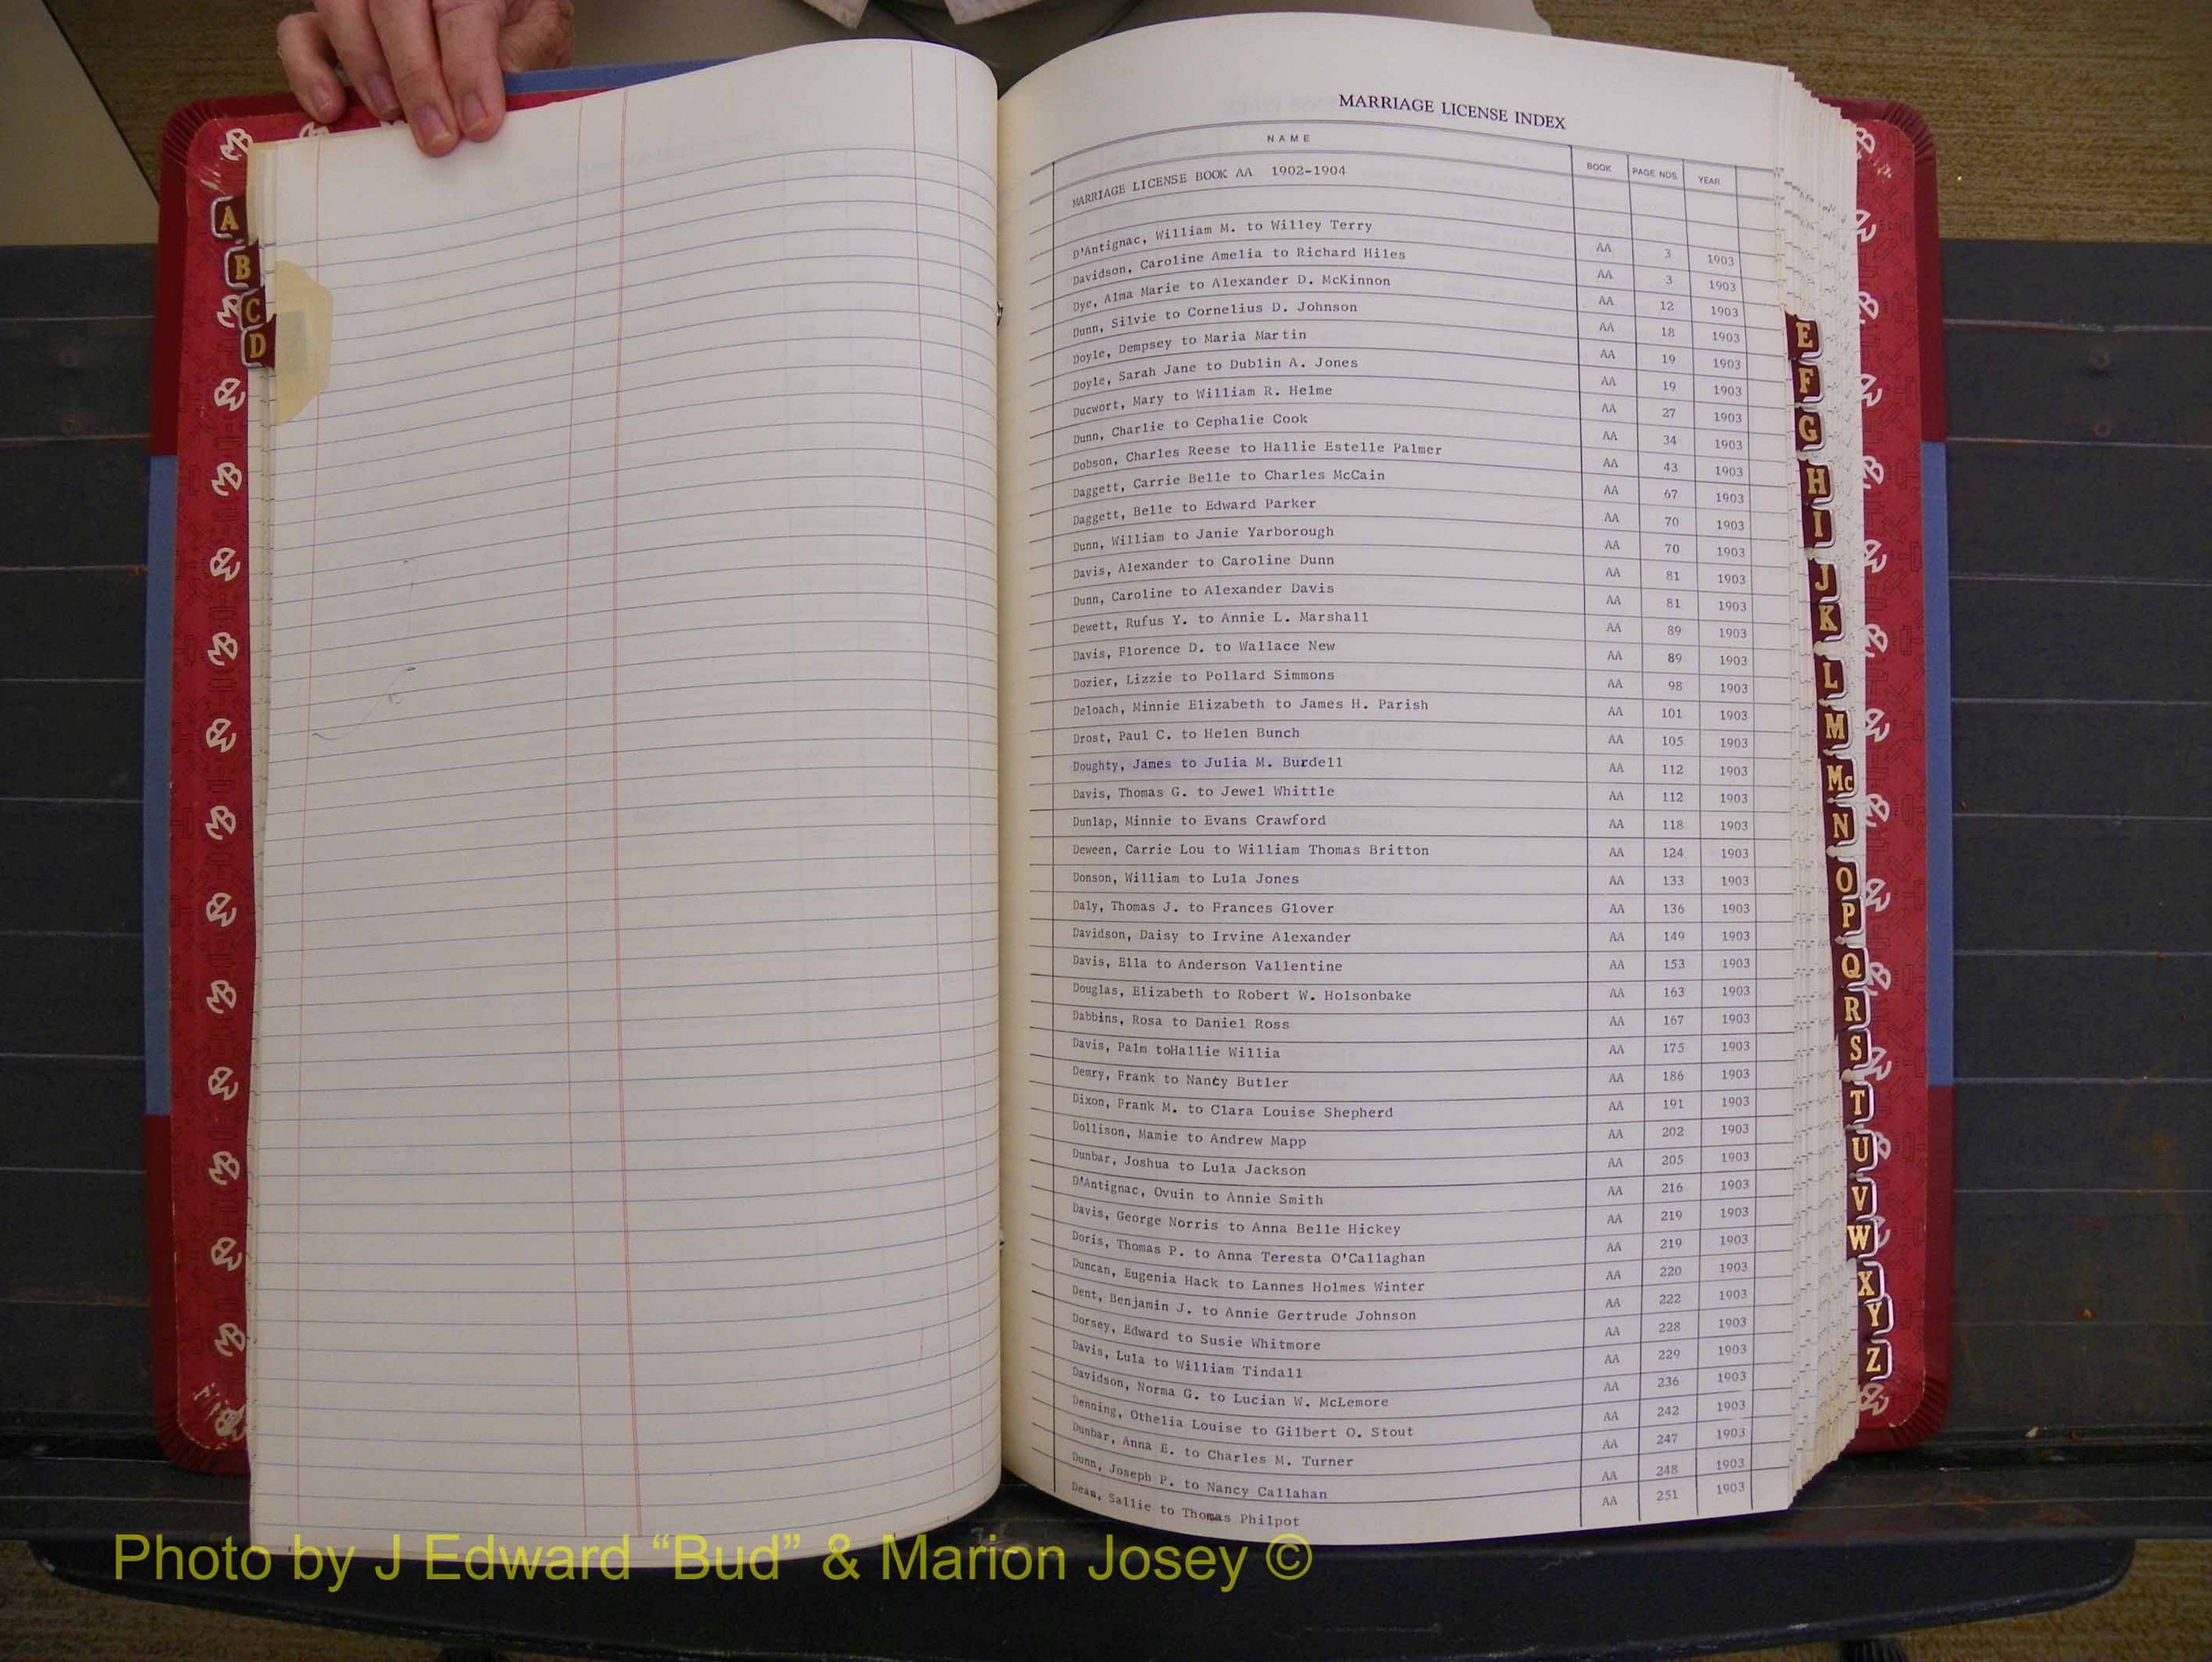 MARRIAGE LICENSE INDEX
NAME BOOK PAGE NOS. YEAR
MARRIAGE LICENSE BOOK AA 1902-1904
D'Antignac, William M. to Willey Terry AA 3 1903
Davidson, Caroline Amelia to Richard Hiles AA 3 1903
Dye, Alma Marie to Alexander D. McKinnon AA 12 1903
Dunn, Silvie to Cornelius D. Johnson AA 18 1903
Doyle, Dempsey to Maria Martin AA 19 1903
Doyle, Sarah Jane to Dublin A. Jones AA 19 1903
Ducwort, Mary to William R. Helme AA 27 1903
Dunn, Charlie to Cephalie Cook AA 34 1903
Dobson, Charles Reese to Hallie Estelle Palmer AA 43 1903
Daggett, Carrie Belle to Charles McCain AA 67 1903
Daggett, Belle to Edward Parker AA 70 1903
Dunn, William to Janie Yarborough AA 70 1903
Davis, Alexander to Caroline Dunn AA 81 1903
Dunn, Caroline to Alexander Davis AA 81 1903
Dewett, Rufus Y. to Annie L. Marshall AA 89 1903
Davis, Florence D. to Wallace New AA 89 1903
Dozier, Lizzie to Pollard Simmons AA 98 1903
Deloach, Minnie Elizabeth to James H. Parish AA 101 1903
Drost, Paul C. to Helen Bunch AA 105 1903
Doughty, James to Julia M. Burdell AA 112 1903
Davis, Thomas G. to Jewel Whittle AA 112 1903
Dunlap, Minnie to Evans Crawford AA 118 1903
Deween, Carrie Lou to William Thomas Britton AA 124 1903
Donson, William to Lula Jones AA 133 1903
Daly, Thomas J. to Frances Glover AA 136 1903
Davidson, Daisy to Irvine Alexander AA 149 1903
Davis, Ella to Anderson Vallentine AA 153 1903
Douglas, Elizabeth to Robert W. Holsonbake AA 163 1903
Dabbins, Rosa to Daniel Ross AA 167 1903
Davis, Palm toHallie Willia AA 175 1903
Demry, Frank to Nancy Butler AA 186 1903
Dixon, Frank M. to Clara Louise Shepherd AA 191 1903
Dollison, Mamie to Andrew Mapp AA 202 1903
Dunbar, Joshua to Lula Jackson AA 205 1903
D'Antignac, Ovuin to Annie Smith AA 216 1903
Davis, George Norris to Anna Belle Hickey AA 219 1903
Doris, Thomas P. to Anna Teresta O'Callaghan AA 219 1903
Duncan, Eugenia Hack to Lannes Holmes Winter AA 220 1903
Dent, Benjamin J. to Annie Gertrude Johnson AA 222 1903
Dorsey, Edward to Susie Whitmore AA 228 1903
Davis, Lula to William Tindall AA 229 1903
Davidson, Norma G. to Lucian W. McLemore AA 236 1903
Denning, Othelia Louise to Gilbert O. Stout AA 242 1903
Dunbar, Anna E. to Charles M. Turner AA 247 1903
Dunn, Joseph P. to Nancy Callahan AA 248 1903
Dean, Sallie to Thomas Philpot AA 251 1903
A
B
C
D
E
F
G
H
I
J
K
L
M
Mc
N
O
P
Q
R
S
T
U
V
W
X
Y
Z
Photo by J Edward “Bud” & Marion Josey ©